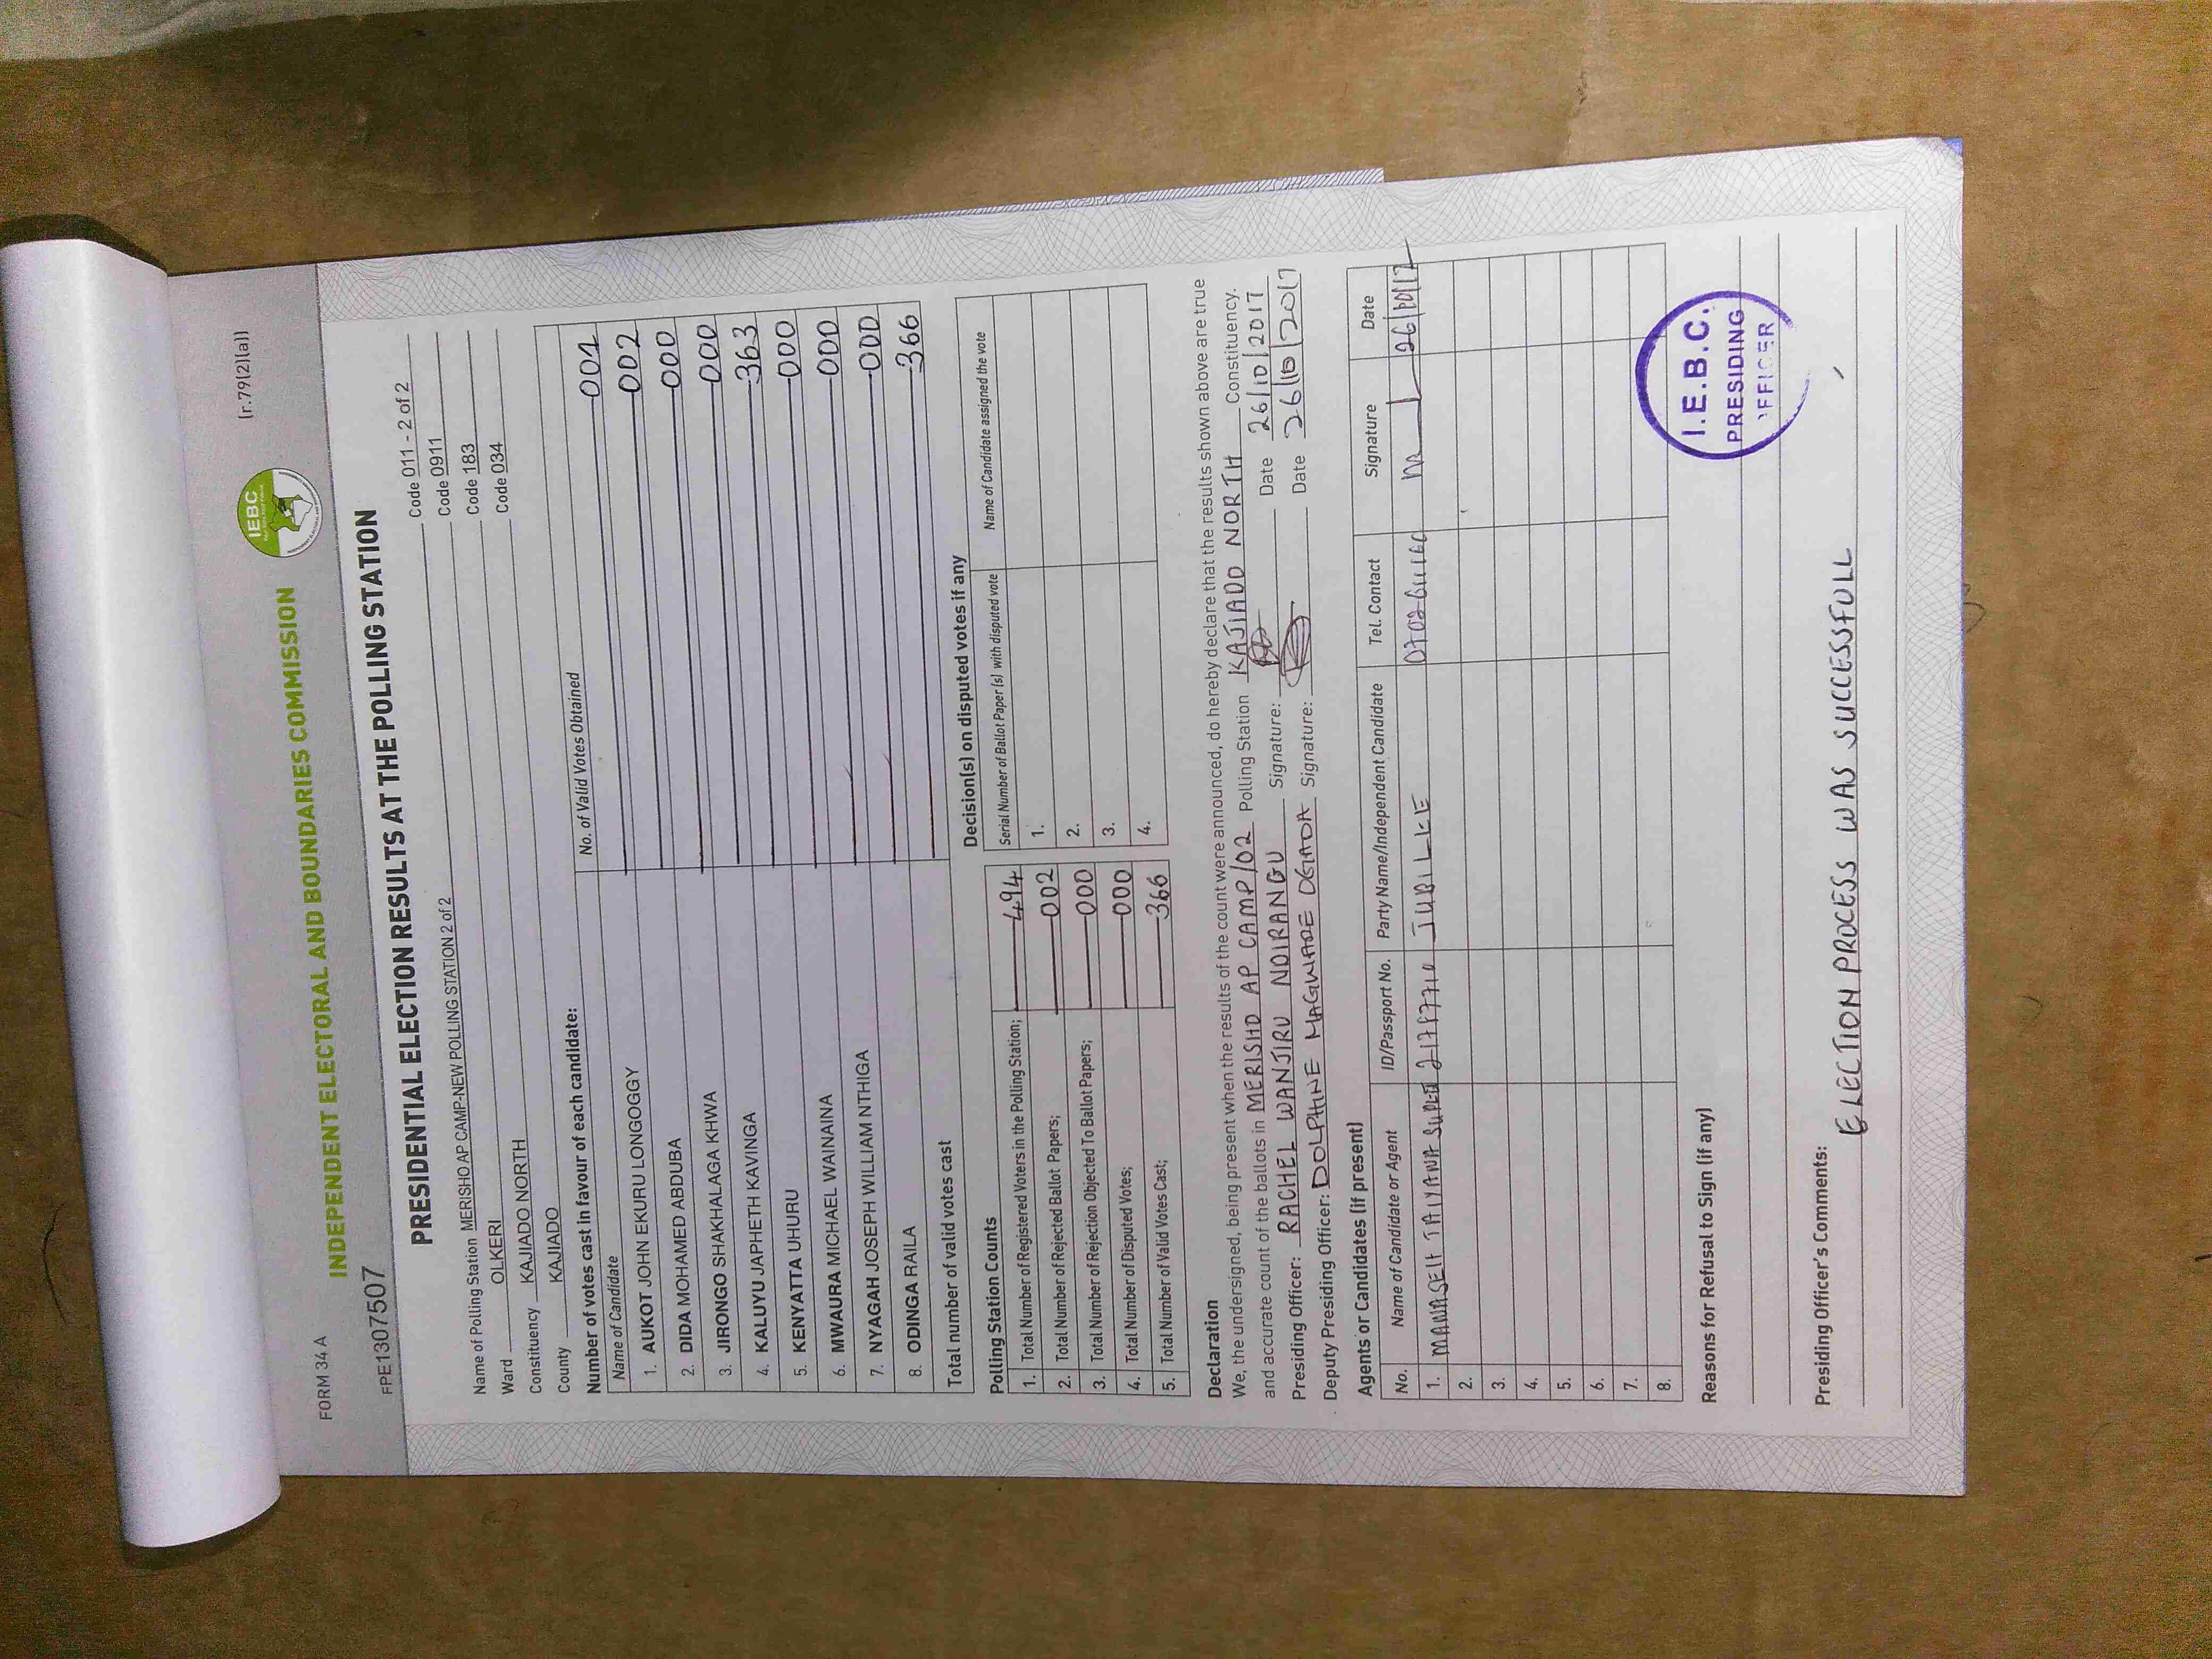 FORM 34 A
(r.79(2)(a))
IEBC
INDEPENDENT ELECTORAL AND BOUNDARIES COMMISSION
FPE1307507
PRESIDENTIAL ELECTION RESULTS AT THE POLLING STATION
Name of Polling Station MERISHO AP CAMP-NEW POLLING STATION 2 of 2 Code 011 - 2 of 2
Ward OLKERI Code 0911
Constituency KAJIADO NORTH Code 183
County KAJIADO Code 034
Number of votes cast in favour of each candidate:
Name of Candidate No. of Valid Votes Obtained
1. AUKOT JOHN EKURU LONGOGGY 001
2. DIDA MOHAMED ABDUBA 002
3. JIRONGO SHAKHALAGA KHWA 000
4. KALUYU JAPHETH KAVINGA 000
5. KENYATTA UHURU 363
6. MWAURA MICHAEL WAINAINA 000
7. NYAGAH JOSEPH WILLIAM NTHIGA 000
8. ODINGA RAILA 000
Total number of valid votes cast 366
Polling Station Counts
1. Total Number of Registered Voters in the Polling Station; 494
2. Total Number of Rejected Ballot Papers; 002
3. Total Number of Rejection Objected To Ballot Papers; 000
4. Total Number of Disputed Votes; 000
5. Total Number of Valid Votes Cast; 366
Decision(s) on disputed votes if any
Serial Number of Ballot Paper (s) with disputed vote Name of Candidate assigned the vote
1.
2.
3.
4.
Declaration
We, the undersigned, being present when the results of the count were announced, do hereby declare that the results shown above are true
and accurate count of the ballots in MERISHO AP CAMP/02 Polling Station KAJIADO NORTH Constituency.
Presiding Officer: RACHEL WANJIRU NDIRANGU Signature: Date 26/10/2017
Deputy Presiding Officer: DOLPHINE MAGWARE Signature: Date 26/10/2017
Agents or Candidates (if present)
No. Name of Candidate or Agent ID/Passport No. Party Name/Independent Candidate Tel. Contact Signature Date
1. MANASEH TAIYANA JUBILEE 26/10/17
2.
3.
4.
5.
6.
7.
8.
Reasons for Refusal to Sign (if any)
I.E.B.C.
PRESIDING
OFFICER
Presiding Officer's Comments:
ELECTION PROCESS WAS SUCCESSFULL